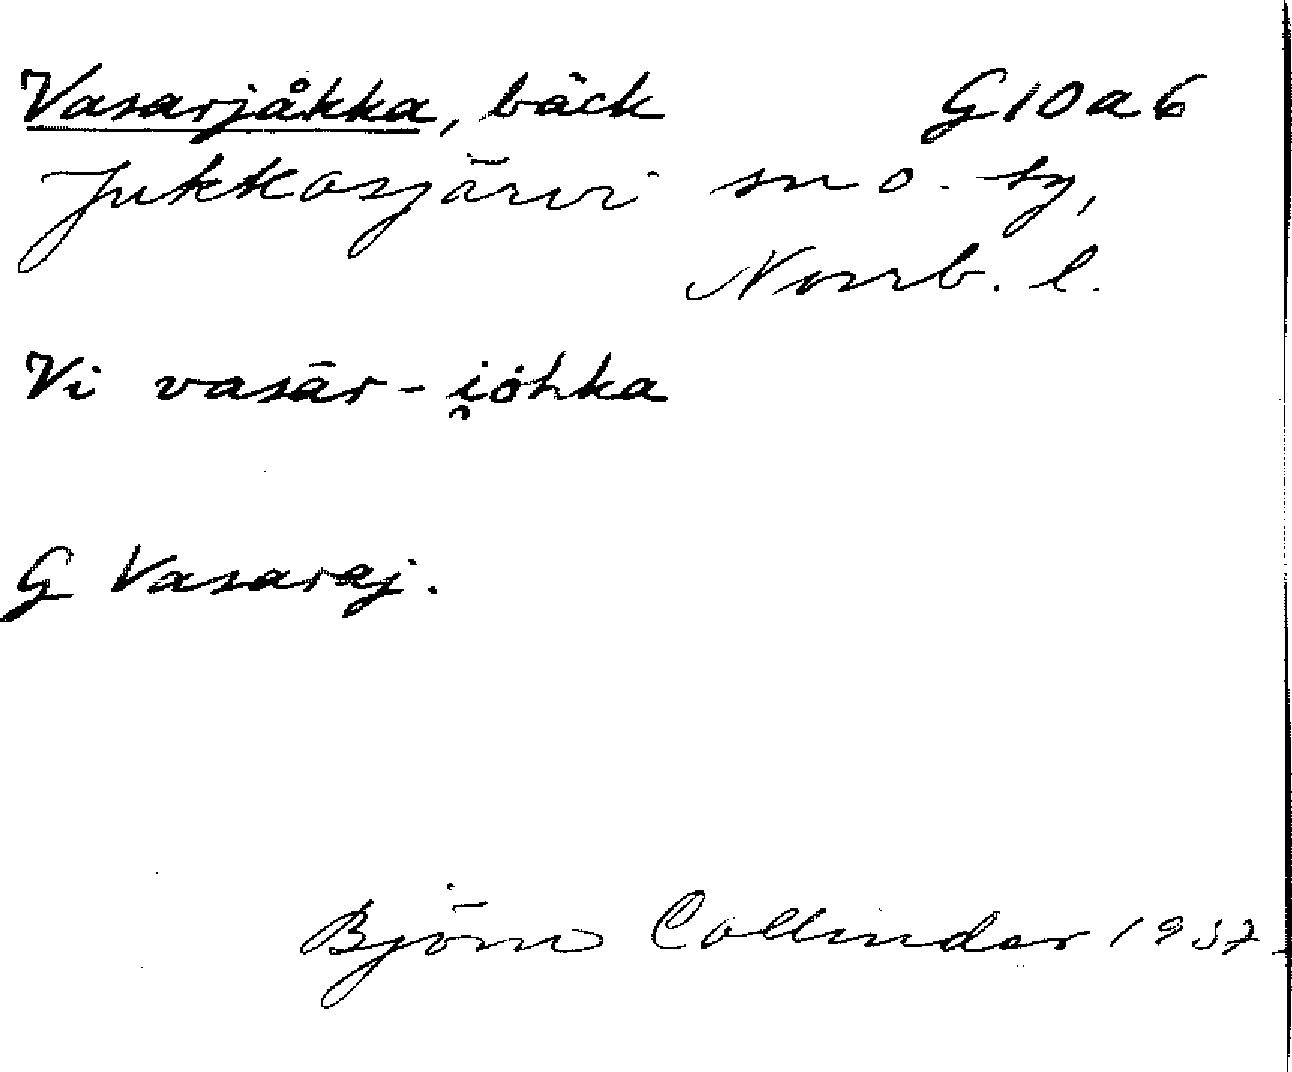 Vasarjåkka, bäck G10a6
Jukkasjärvi sn o. tg,
Norrb. l.
Vi vasār- i̯ȯhka
G Vasaraj.
Björn Collinder 1937.